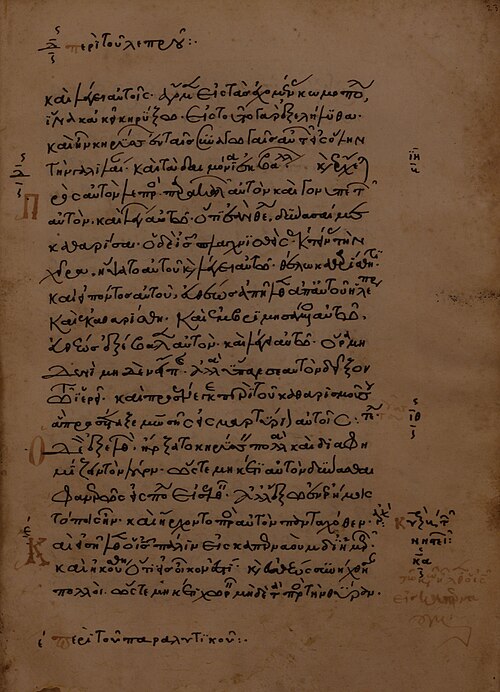 περὶ τοῦ λεπροῦ:·
καὶ λέγει αὐτοῖς· ἄγωμεν εἰς τὰς ἐχομένας κωμοπό
ἵνα κἀκεῖ κηρύξω· εἰς τοῦτο γὰρ ἐξελήλυθα·
καὶ ἦν κηρύσσων ἐν ταῖς συναγωγαῖς αὐτῶν εἰς ὅλην
τὴν γαλιλαίαν· καὶ τὰ δαιμόνια ἐκβάλλων· καὶ ἔρχεται
πρὸς αὐτὸν λεπρός· παρακαλῶν αὐτὸν καὶ γονυπετῶν
αὐτὸν. καὶ λέγων αὐτῷ· ὅτι ἐὰν θέλῃς, δύνασαί με
καθαρίσαι· ὁ δὲ ις σπλαγχνισθεὶς· ἐκτείνας τὴν
χεῖρα, ἥψατο αὐτοῦ καὶ λέγει αὐτῷ· θέλω καθαρίσθητι·
καὶ εἰπόντος αὐτοῦ, εὐθέως ἀπῆλθεν ἀπ' αὐτοῦ ἡ λέπρα
καὶ ἐκαθαρίσθη· καὶ ἐμβριμησάμενος αὐτῷ,
εὐθέως ἐξέβαλεν αὐτὸν. καὶ λέγει αὐτῷ· ὅρα μη
δενὶ μηδὲν εἴπῃς· ἀλλ' ὕπαγε σεαυτὸν δεῖξον
τῷ ἱερεῖ· καὶ προσένεγκε περὶ τοῦ καθαρισμοῦ σου
ἃ προσέταξε μωσῆς εἰς μαρτύριον αὐτοῖς·
ὁ δὲ ἐξελθὼν ἤρξατο κηρύσσειν πολλὰ καὶ διαφη
μίζειν τὸν λόγον· ὥστε μηκέτι αὐτὸν δύνασθαι
φανερῶς εἰς πόλιν εἰσελθεῖν· ἀλλ' ἔξω ἐν ἐρήμοις
τόποις ἦν· καὶ ἤρχοντο πρὸς αὐτὸν πανταχόθεν·
καὶ εἰσῆλθε πάλιν εἰς καπερναοὺμ δι' ἡμερῶν
καὶ ἠκούσθη ὅτι εἰς οἶκόν ἐστι· καὶ εὐθέως συνήχθησαν
πολλοί. ὥστε μηκέτι χωρεῖν μηδὲ τὰ πρὸς τὴν θύραν·
περὶ τοῦ παραλυτικοῦ:·